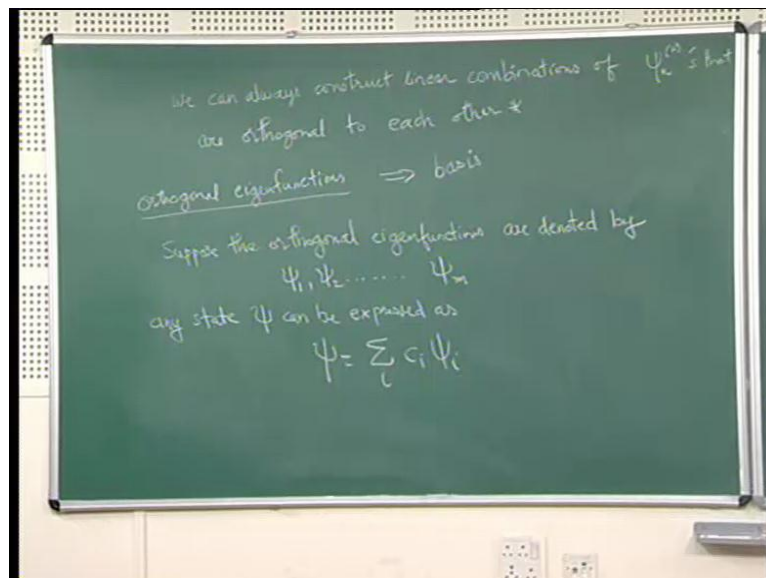 we can always construct linear combinations of ψₙ⁽ˡ⁾'s that
are orthogonal to each other *
orthogonal eigenfunctions ⇒ basis
Suppose the orthogonal eigenfunctions are denoted by
ψ₁, ψ₂ ....... ψₘ
any state ψ can be expressed as
ψ = Σᵢ cᵢ ψᵢ